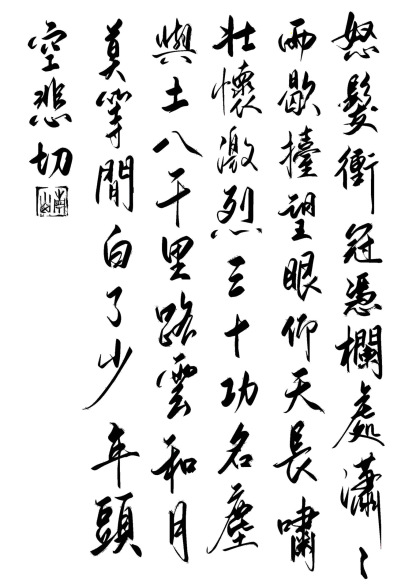 怒髮衝冠憑欄處瀟々
雨歇擡望眼仰天長嘯
壯懷激烈三十功名塵
與土八千里路雲和月
莫等間白了少年頭
空悲切